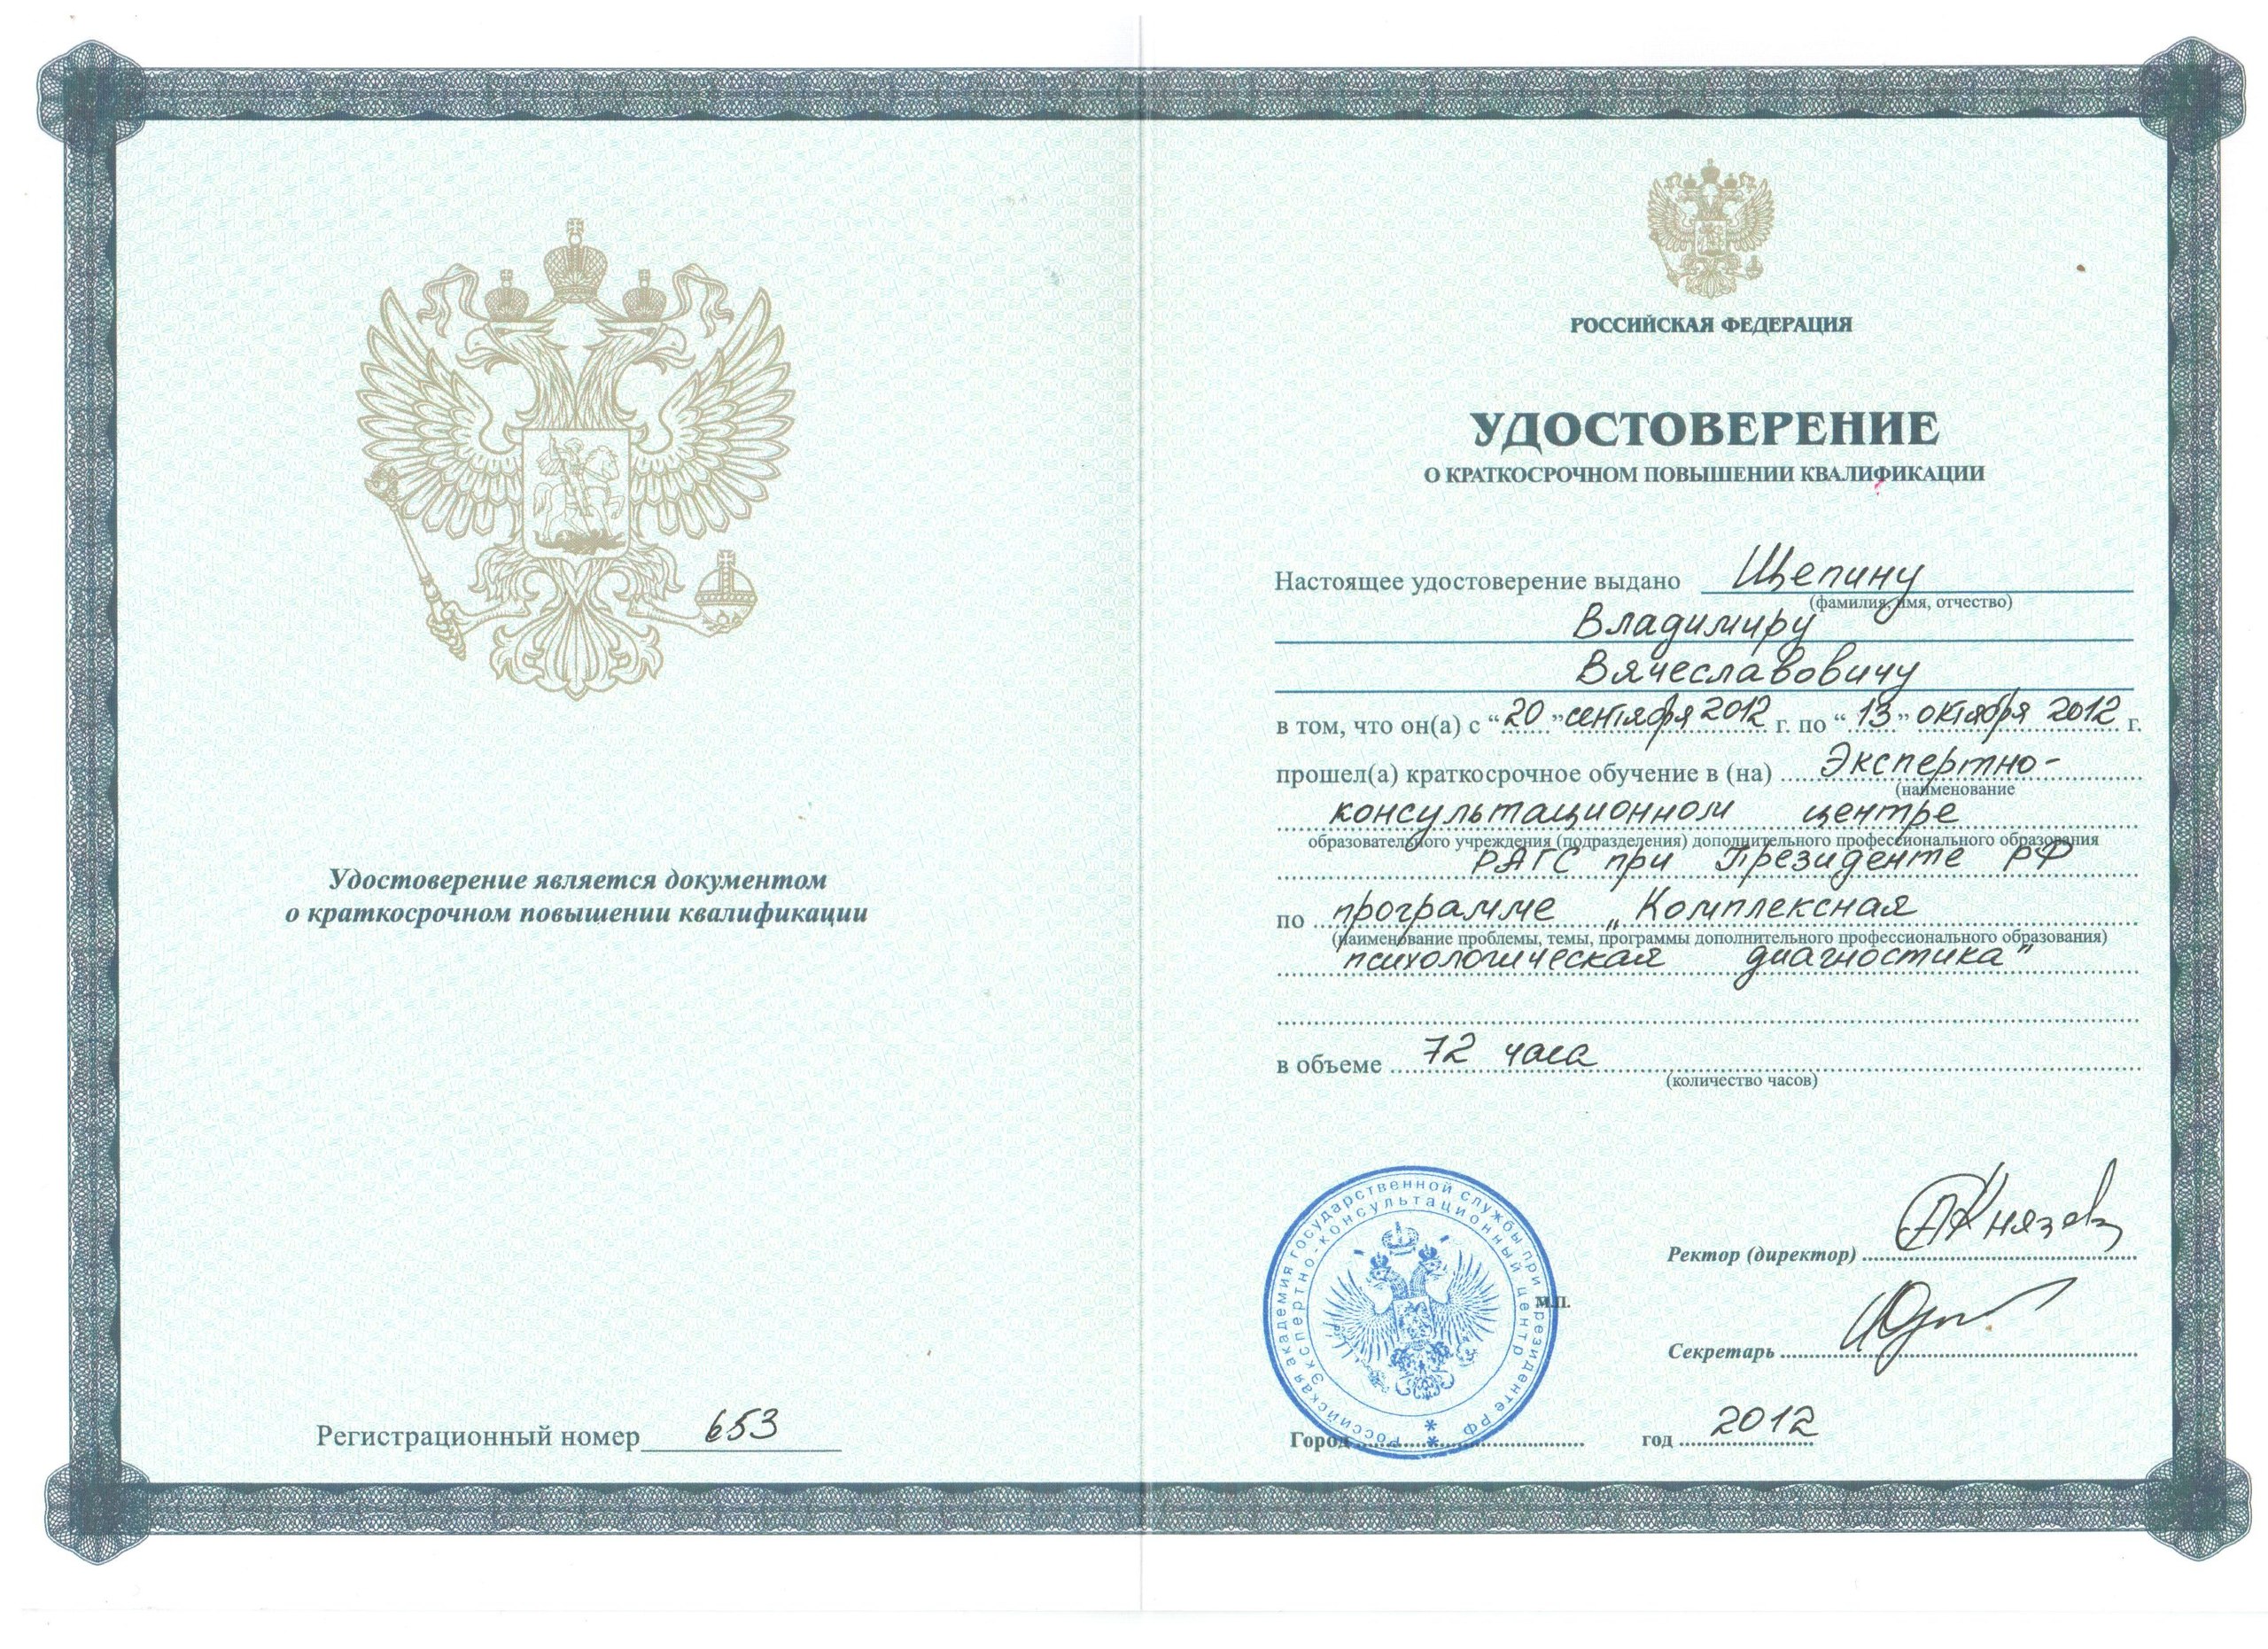 Удостоверение является документом
о краткосрочном повышении квалификации
Регистрационный номер 653
РОССИЙСКАЯ ФЕДЕРАЦИЯ
УДОСТОВЕРЕНИЕ
О КРАТКОСРОЧНОМ ПОВЫШЕНИИ КВАЛИФИКАЦИИ
Настоящее удостоверение выдано Щепину
(фамилия, имя, отчество)
Владимиру
Вячеславовичу
в том, что он(а) с “20” сентября 2012 г. по “13” октября 2012 г.
прошел(а) краткосрочное обучение в (на) Экспертно-
(наименование
консультационном центре
образовательного учреждения (подразделения) дополнительного профессионального образования
РАГС при Президенте РФ
по программе „Комплексная
(наименование проблемы, темы, программы дополнительного профессионального образования)
психологическая диагностика"
в объеме 72 часа
(количество часов)
Российская академия государственной службы при Президенте РФ
Экспертно-консультационный центр
М.П.
Ректор (директор) АКнязев
Секретарь
Город
год 2012